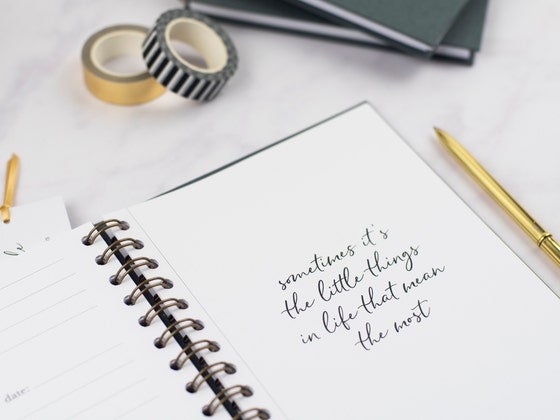 sometimes it's
the little things
in life that mean
the most
date: